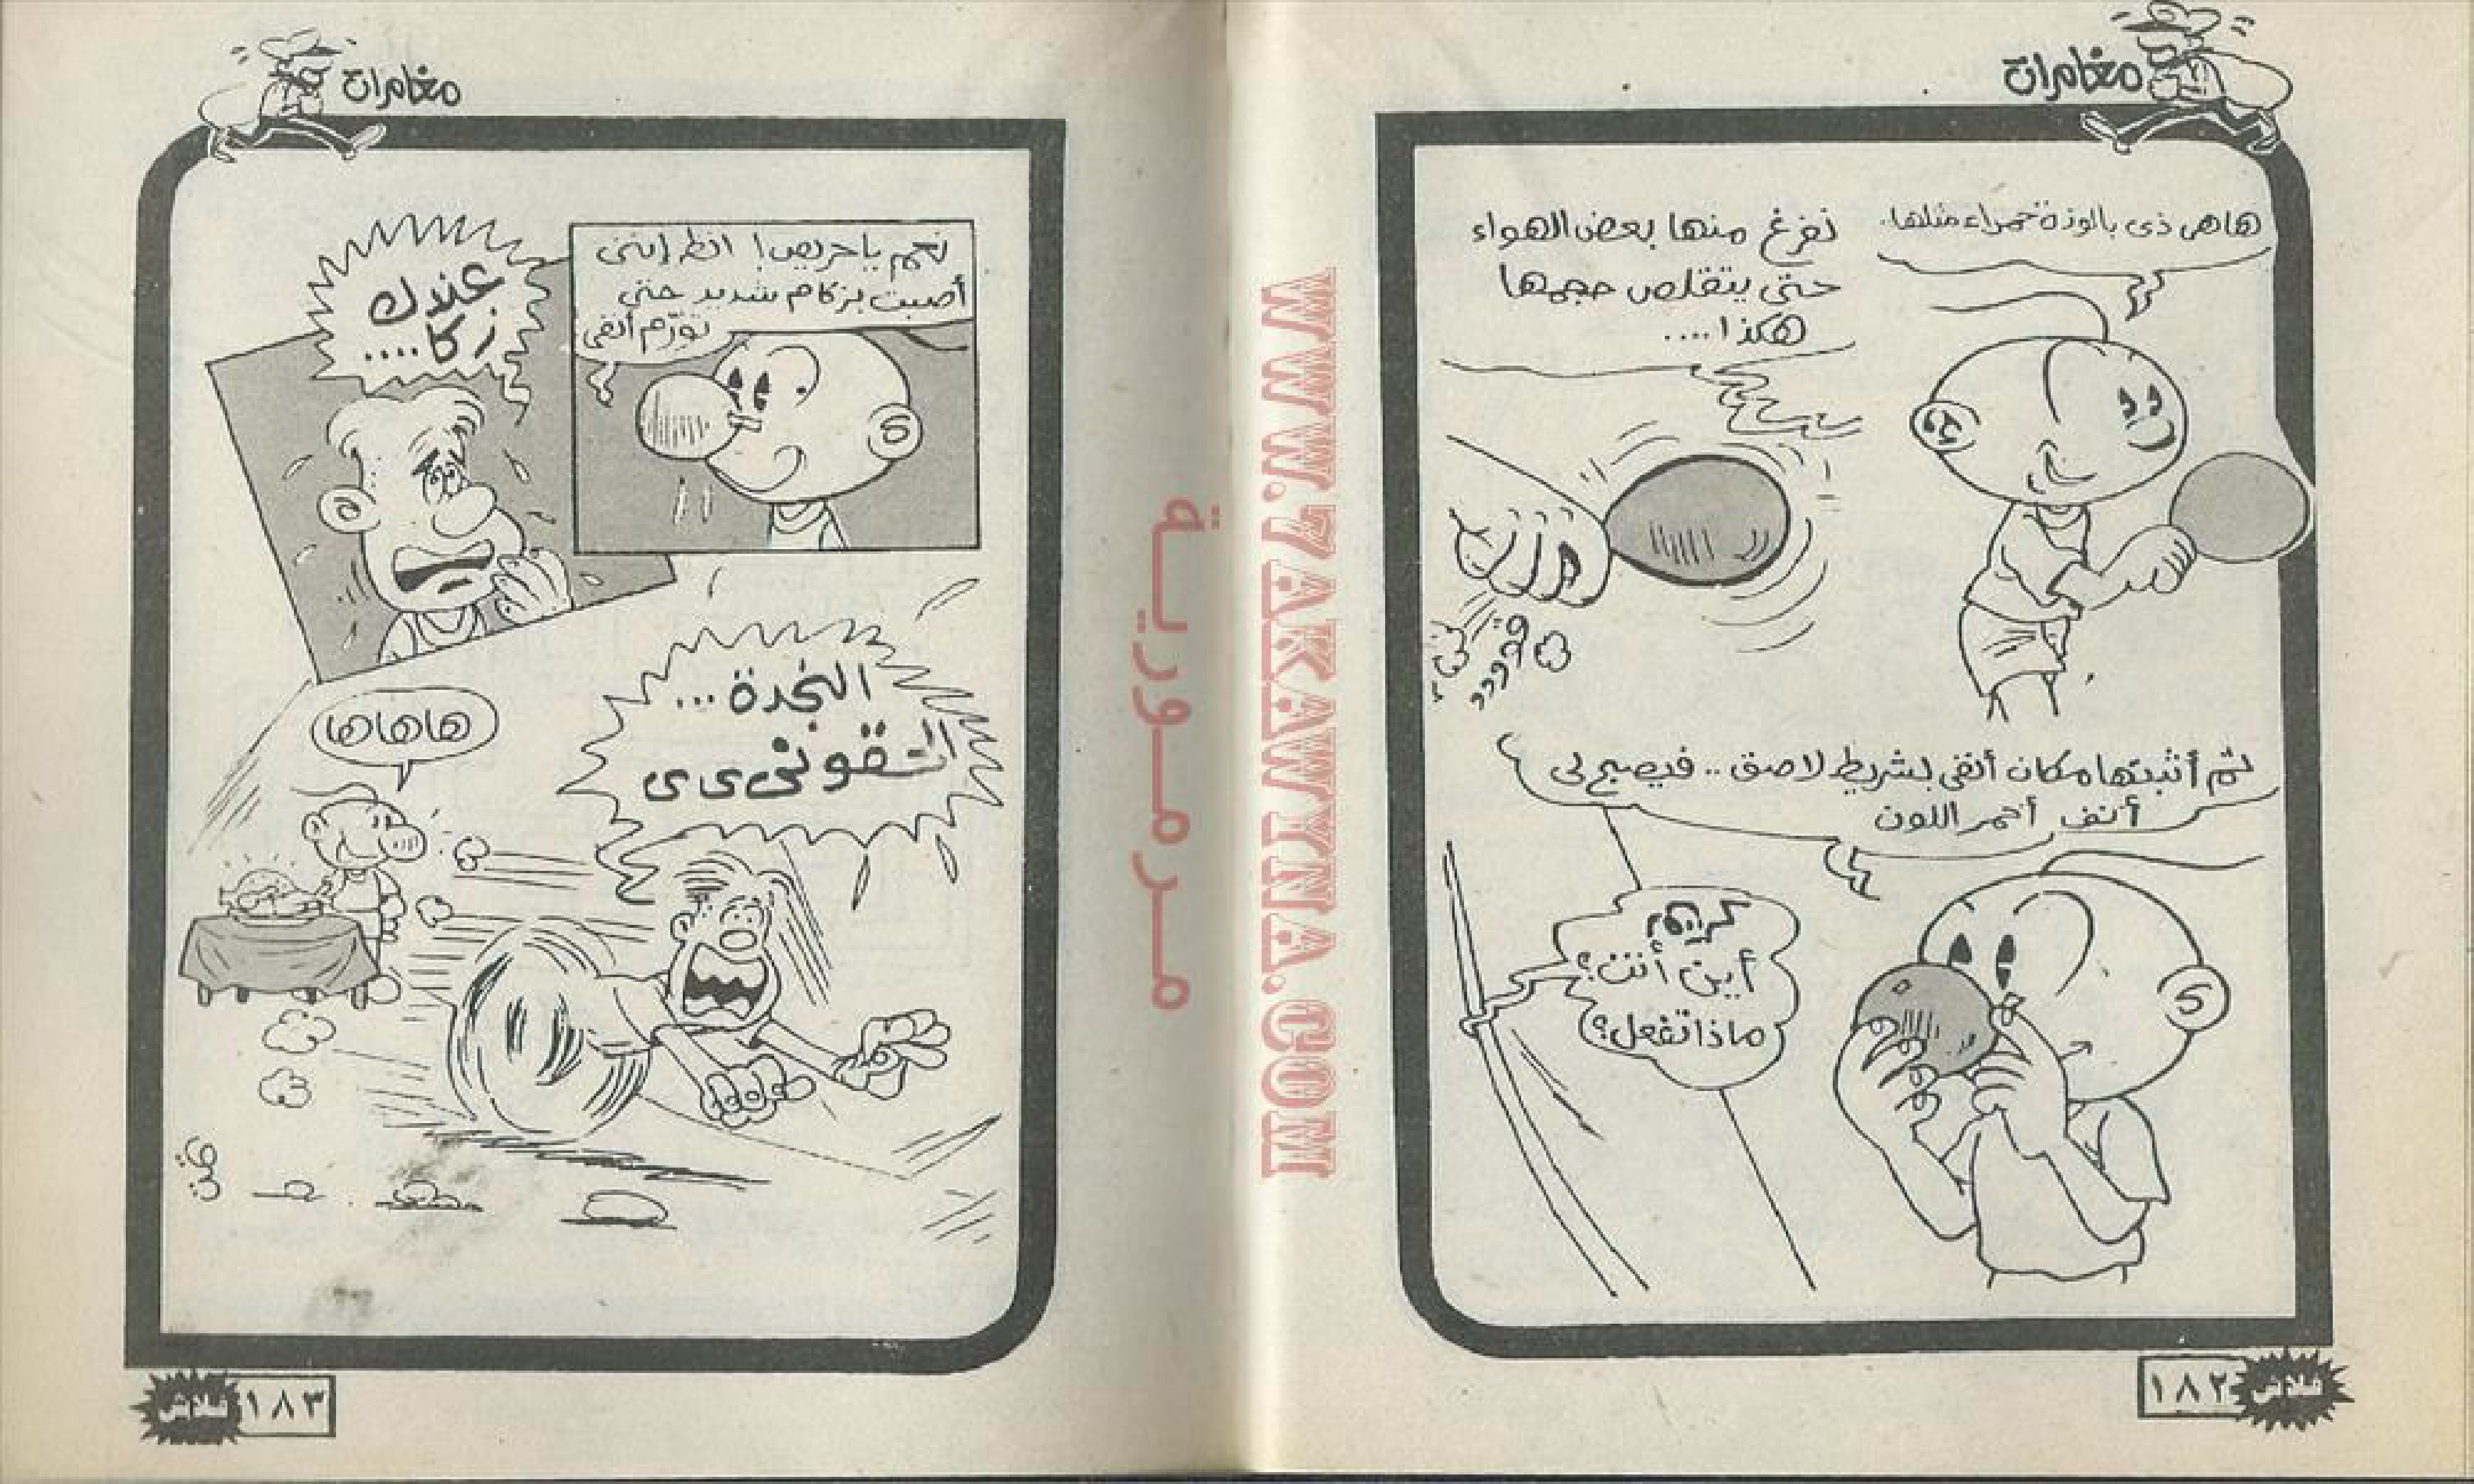 مغامرات
هاهى ذى بالونة حمراء مثلها.
نفرغ منها بعض الهواء
حتى يتقلص حجمها
هكذا....
ثم أثبتها مكان أنفى بشريط لاصق .. فيصبح لى
أنف أحمر اللون
كريم
أين أنت؟
ماذا تفعل؟
١٨٢
فلاش
WWW.7AKAWYNA.COM
مرمورية
مغامرات
نعم يا حريص! انظر إننى
أصبت بزكام شديد حتى
تورّم أنفى
عندك
زكا....
النجدة...
الحقونى ى ى
هاهاها
١٨٣
فلاش